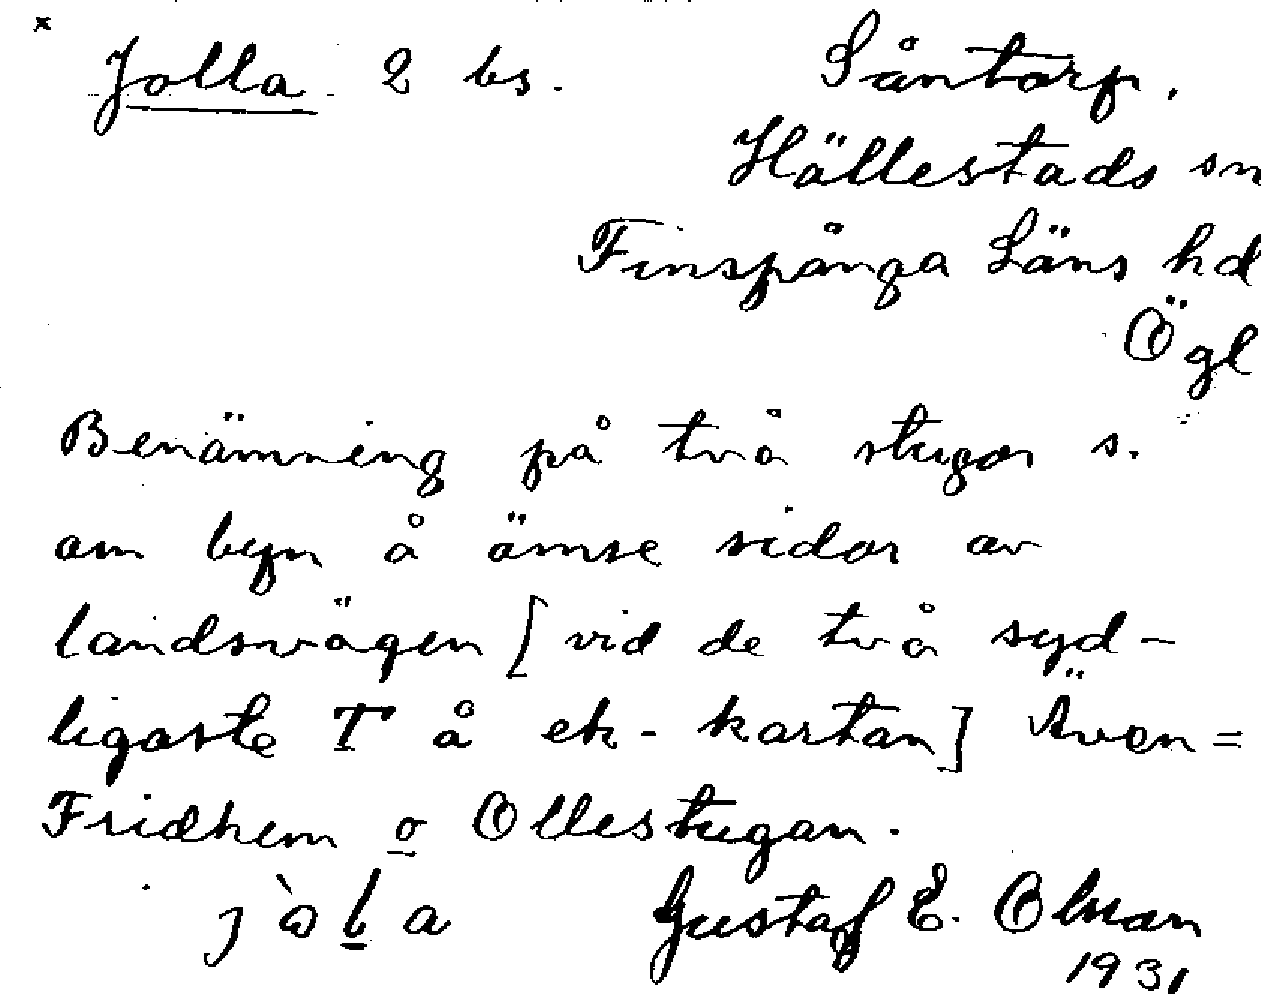 x
Jolla 2 bs. Såntorp.
Hällestads sn
Finspånga Läns hd
Ögl
Benämning på två stugor s.
om byn å ömse sidor av
landsvägen [vid de två syd-
ligaste T å ek-kartan] Även =
Fridhem o Ollestugan.
jòla Gustaf E. Olson
1931